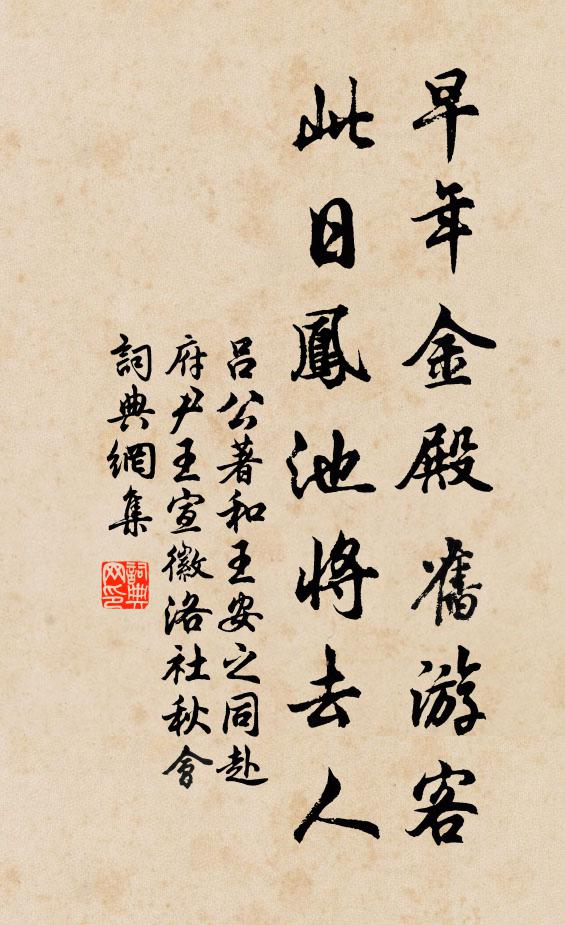 早年金殿舊游客
此日鳳池將去人
吕公著和王安之同赴
府尹王宣徽洛社秋會
詞典網集
詞典
网印